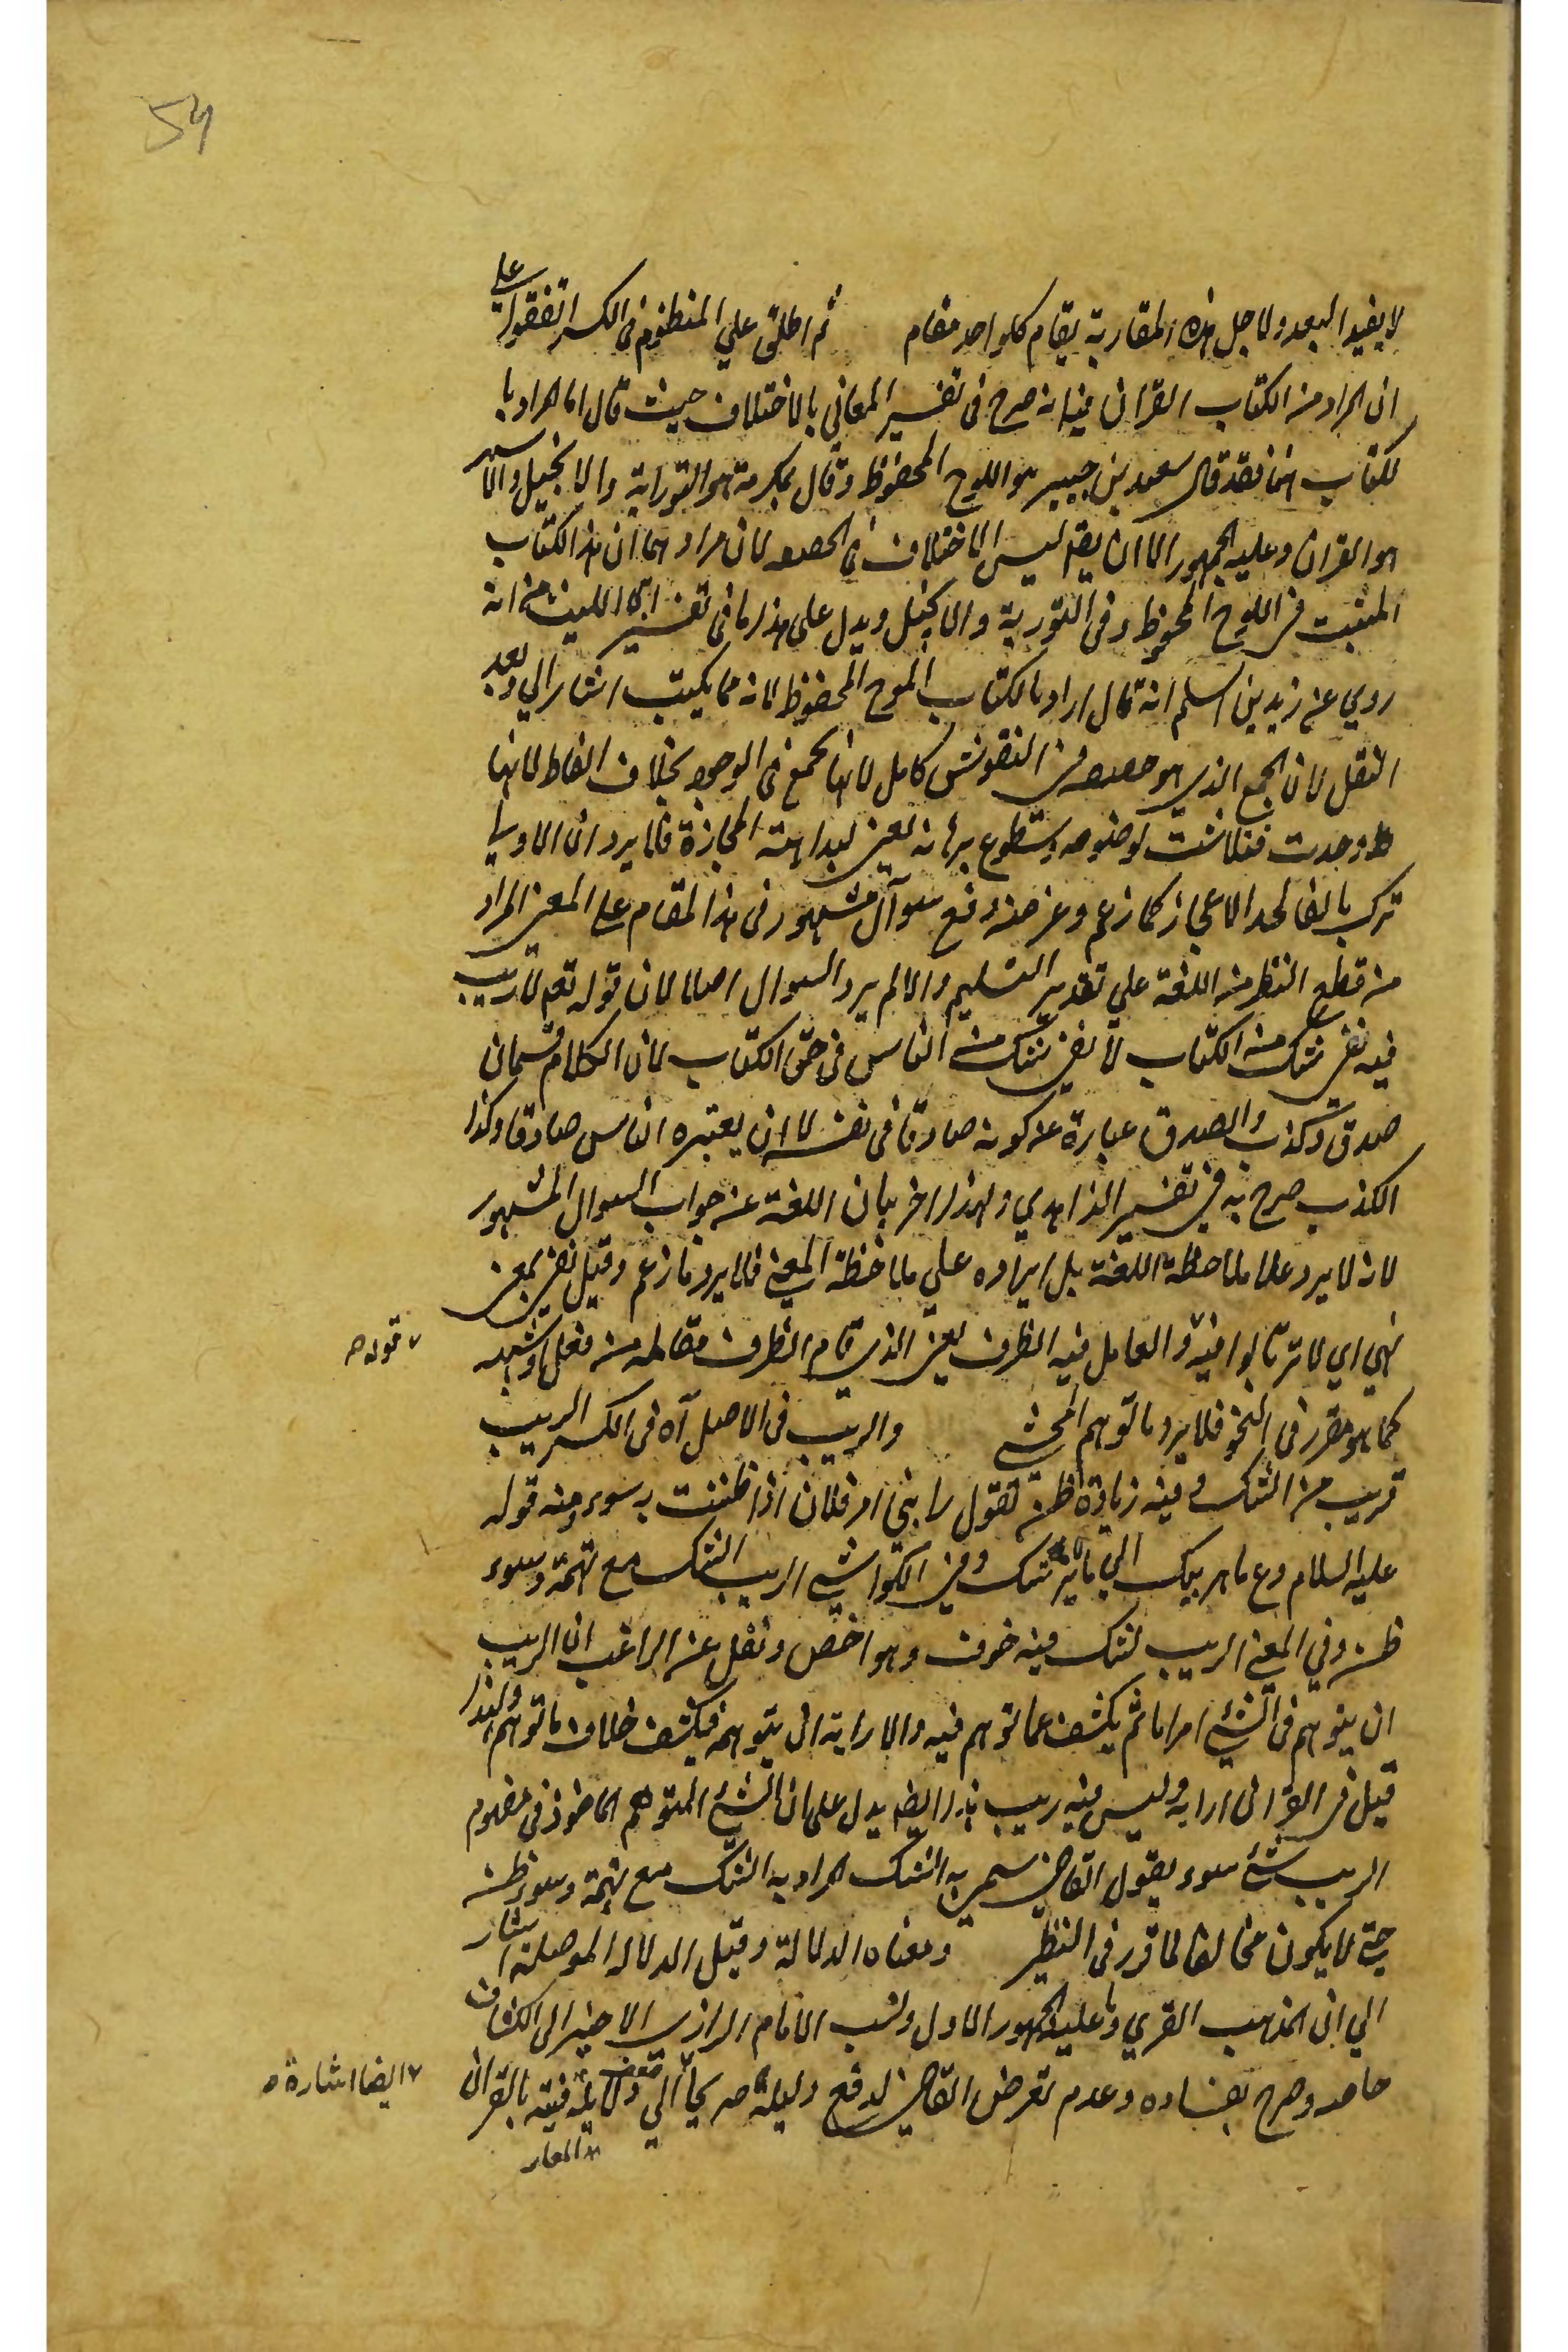 54
لا يفيد البعد ولاجل هذه المقاربة يقام كل واحد مقام ثم اطلق علي المنظوم في الكسر اتفقوا علي
ان المراد من الكتاب القران فيه انه صرح في تفسير المعاني بالاختلاف حيث قال اما المراد با
لكتاب ههنا فقد قال سعيد بن جبير هو اللوح المحفوظ وقال عكرمة هو التوراية والانجيل والاشهر
هو القران وعليه الجمهور الا ان يقه ليس الاختلاف في لان مرادهما ان هذا الكتاب
المثبت في اللوح المحفوظ وفي التورية والانجيل ويدل علي هذا ما في تفسير ابي الليث من انه
روي عن زيد بن اسلم انه قال اراد بالكتاب اللوح المحفوظ لانه مما يكتب اشار الي وبعد
النقل لان الجمع الذي هو في النقوش كامل لانها تجمع في الوجود بخلاف الفاظ لانها
وجدت فتلاشت لوضوحه وسطوع برهانه يعني لبداهته فلا يرد ان الاولي
ترك بالغا لحد الاعجاز كما زعم وغرضه دفع سوآل مشهور في هذا المقام علي المعني المراد
من قطع النظر من اللغة علي تقدير التسليم والا لم يرد السوال اصلا لان قوله تعم لا ريب
فيه نفي شك من الكتاب لا نفي شك من الناس في حق الكتاب لان الكلام قسمان
صدق وكذب والصدق عبارة عن كونه صادقا في نفسه لا ان يعتبره الناس صادقا وكذا
الكذب صرح به في تفسير الزاهدي ولهذا اخر بيان اللغة عن جواب السوال المشهور
لانه لا يرد علي ملاحظة اللغة بل ايراده علي ملاحظة المعني فلا يرد ما زعم وقيل نفي بمعني
نهي اي لا ترتابوا فيه والعامل فيه الظرف يعني الذي قام الظرف مقامه من فعل او شبهه
٧ قوله صـ
كما هو مقرر في النحو فلا يرد ما توهم المحشي والريب في الاصل آه في الكسر الريب
قريب من الشك وفيه زيادة ظن تقول رابني امر فلان اذا ظننت به سوء ومنه قوله
عليه السلام دع ما يريبك الي شك وفي الكواشي الريب الشك مع تهمة وسوء
ظن وفي المعني الريب لشك فيه خوف وهو اخص ونقل عن الراغب ان الريب
ان يتوهم في الشيء امرا ما ثم يكشف عما توهم فيه والارابة ان يتوهمه فيكشف خلاف ما توهم ولهذا
قيل في القرآن ارابة وليس فيه ريب هذا ايضا يدل علي ان الشيء المتوهم الماخوذ في مفهوم
الريب شيء سوء يقول القاضي سمي به الشك المراد به الشك مع تهمة وسوء ظن
حتي لا يكون مخالفا لما قرر في النظير ومعناه الدلالة وقيل الدلالة الموصلة اشار
الي ان المذهب القوي وما عليه الجمهور الاول ونسب الامام الرازي الاخير الي الكشاف
وصرح بفساده وعدم تعرض القاضي لدفع دليله صريحا الي بالقران
٧ ايضا اشارة صـ